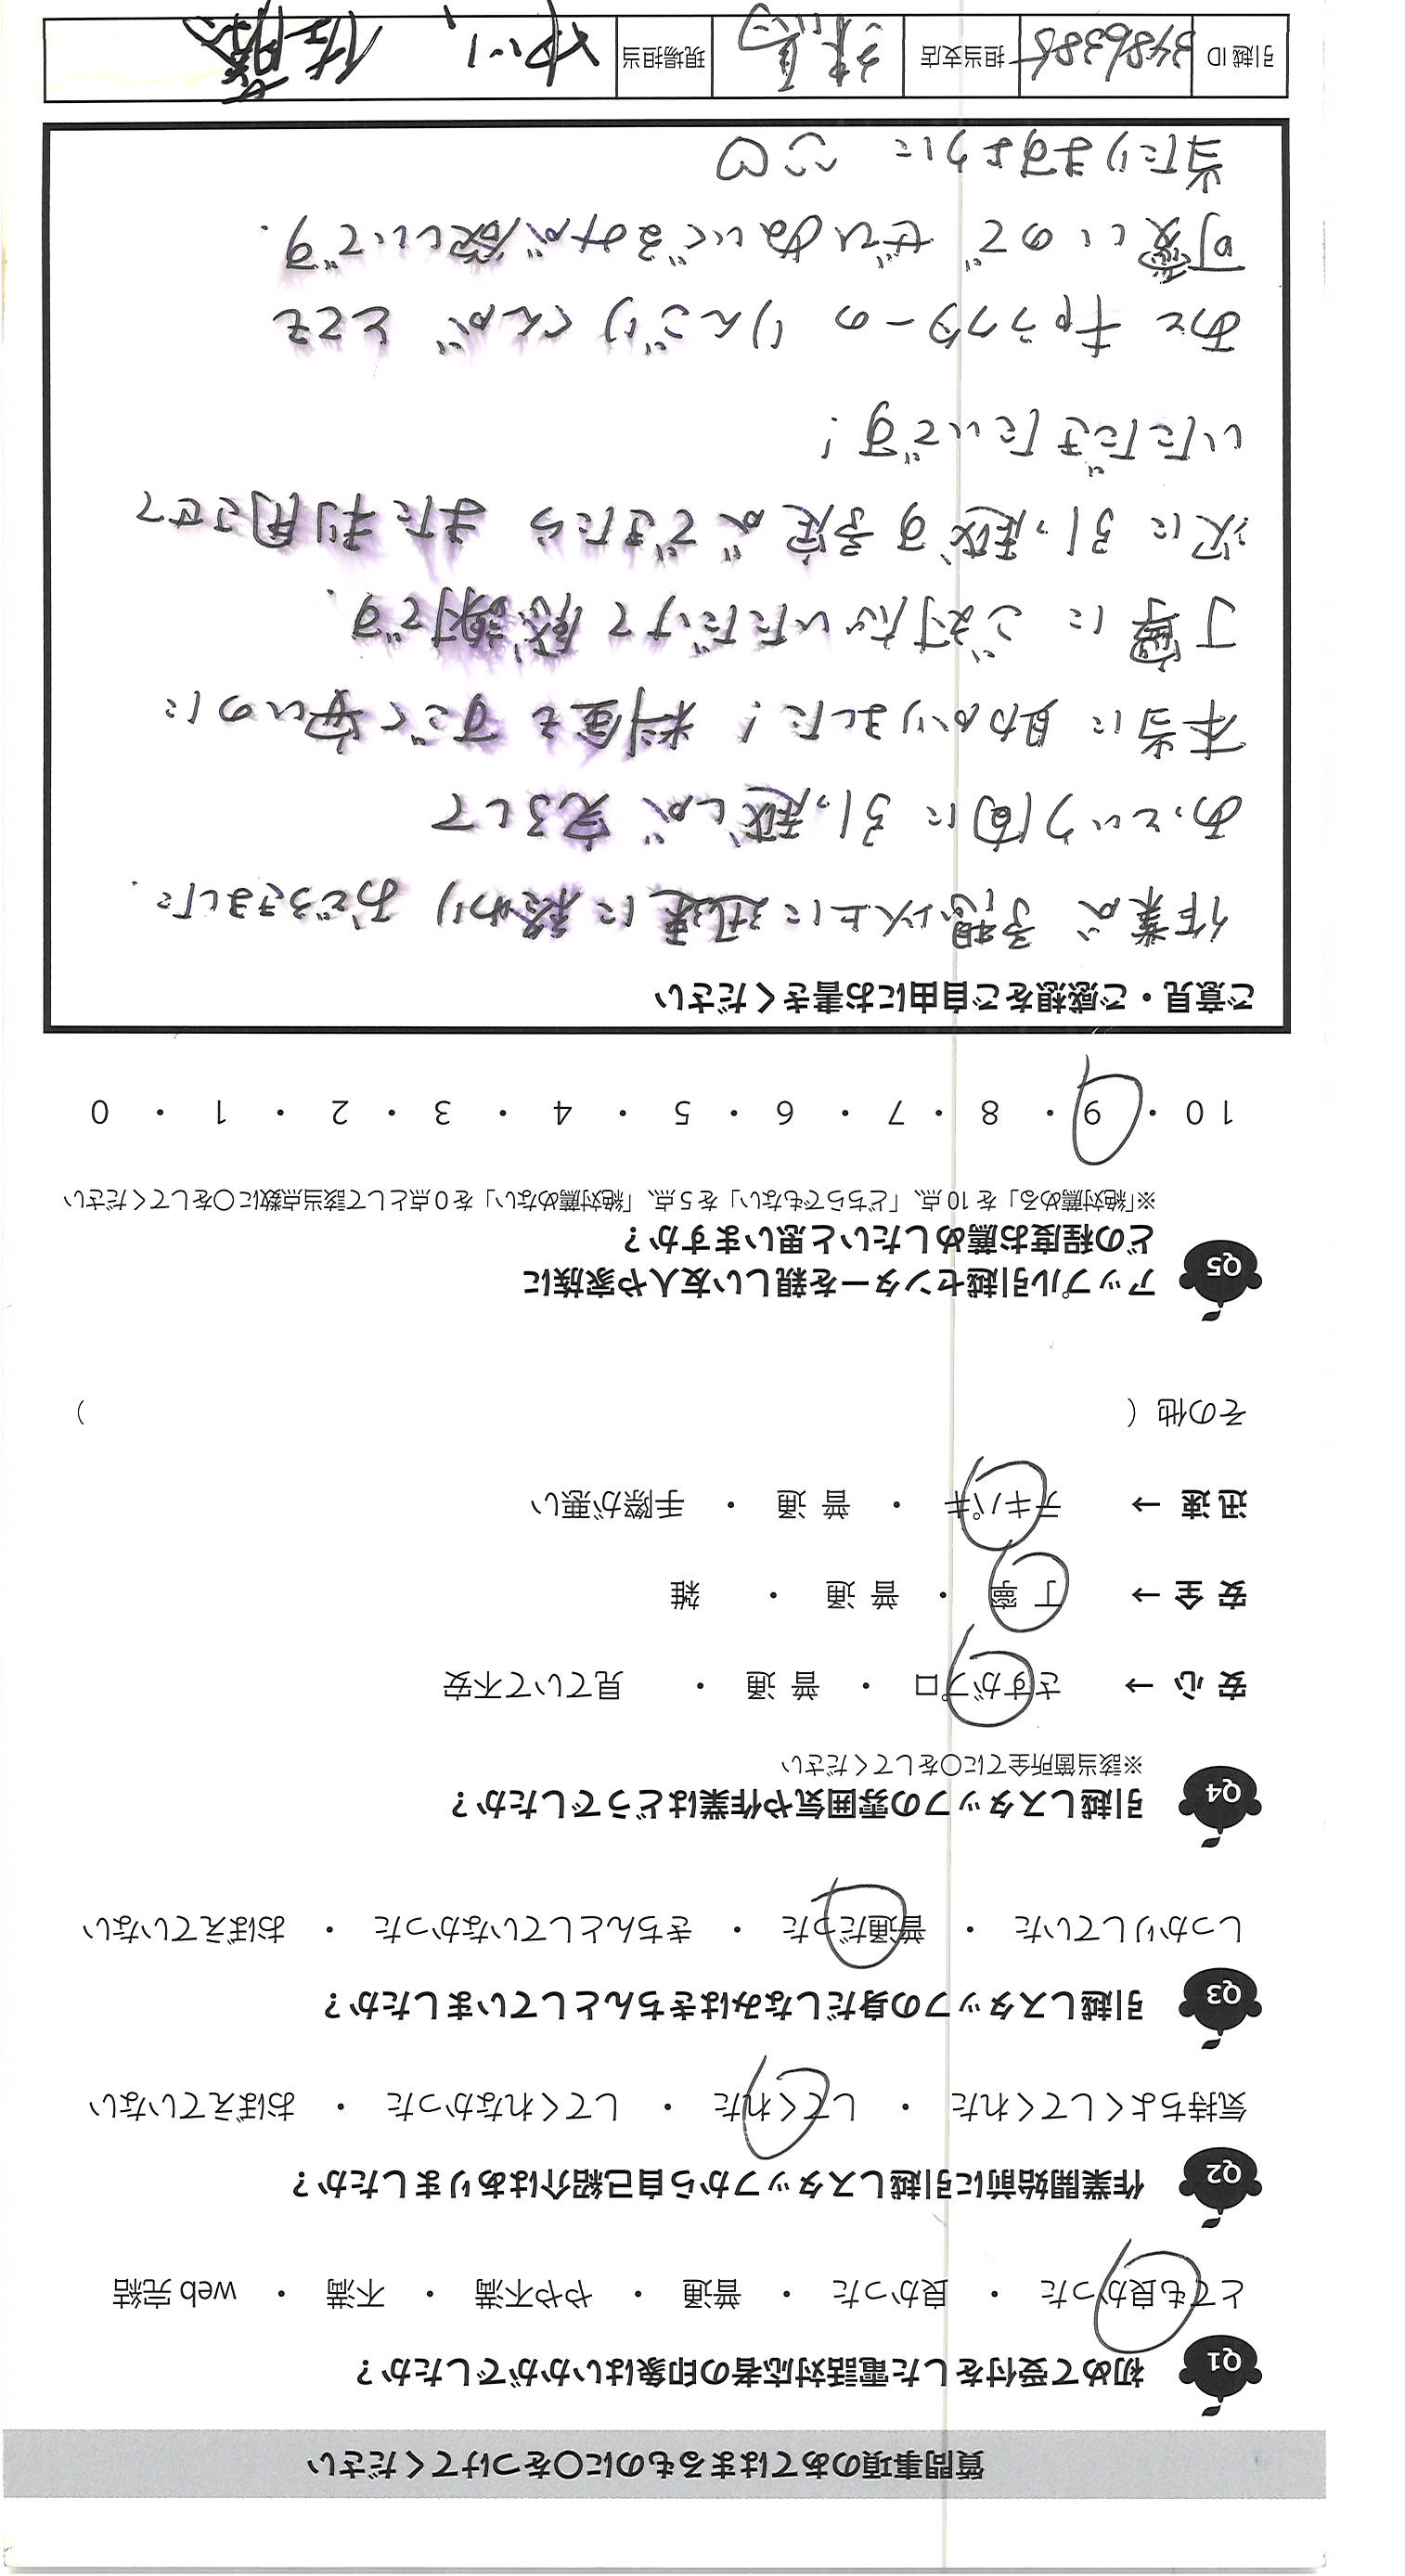 質問事項のあてはまるものに○をつけてください
Q1 初めて受付をした電話対応者の印象はいかがでしたか？
とても良かった ・ 良かった ・ 普通 ・ やや不満 ・ 不満 ・ web 完結
Q2 作業開始前に引越しスタッフから自己紹介はありましたか？
気持ちよくしてくれた ・ してくれた ・ してくれなかった ・ おぼえていない
Q3 引越しスタッフの身だしなみはきちんとしていましたか？
しっかりしていた ・ 普通だった ・ きちんとしていなかった ・ おぼえていない
Q4 引越しスタッフの雰囲気や作業はどうでしたか？
※該当箇所全てに○をしてください
安 心 → さすがプロ ・ 普 通 ・ 見ていて不安
安 全 → 丁 寧 ・ 普 通 ・ 雑
迅 速 → テキパキ ・ 普 通 ・ 手際が悪い
その他（ ）
Q5 アップル引越センターを親しい友人や家族に
どの程度お薦めしたいと思いますか？
※「絶対薦める」を 10 点、「どちらでもない」を 5 点、「絶対薦めない」を 0 点として該当点数に○をしてください
10 ・ 9 ・ 8 ・ 7 ・ 6 ・ 5 ・ 4 ・ 3 ・ 2 ・ 1 ・ 0
ご意見・ご感想をご自由にお書きください
作業が 予想以上に迅速に終わり おどろきました.
あっという間に 引っ越しが 完了して
本当に 助かりました! 料金も すごく安いのに
丁寧に ご対応いただけて 感謝です.
次に 引っ越す予定ができたら また利用させて
いただきたいです!
あと キャラクターの りんごりくんが とても
可愛いので ぜひぬいぐるみが欲しいです.
当たりますように ♡
引越 ID 3486385 担当支店 練馬 現場担当 佐藤